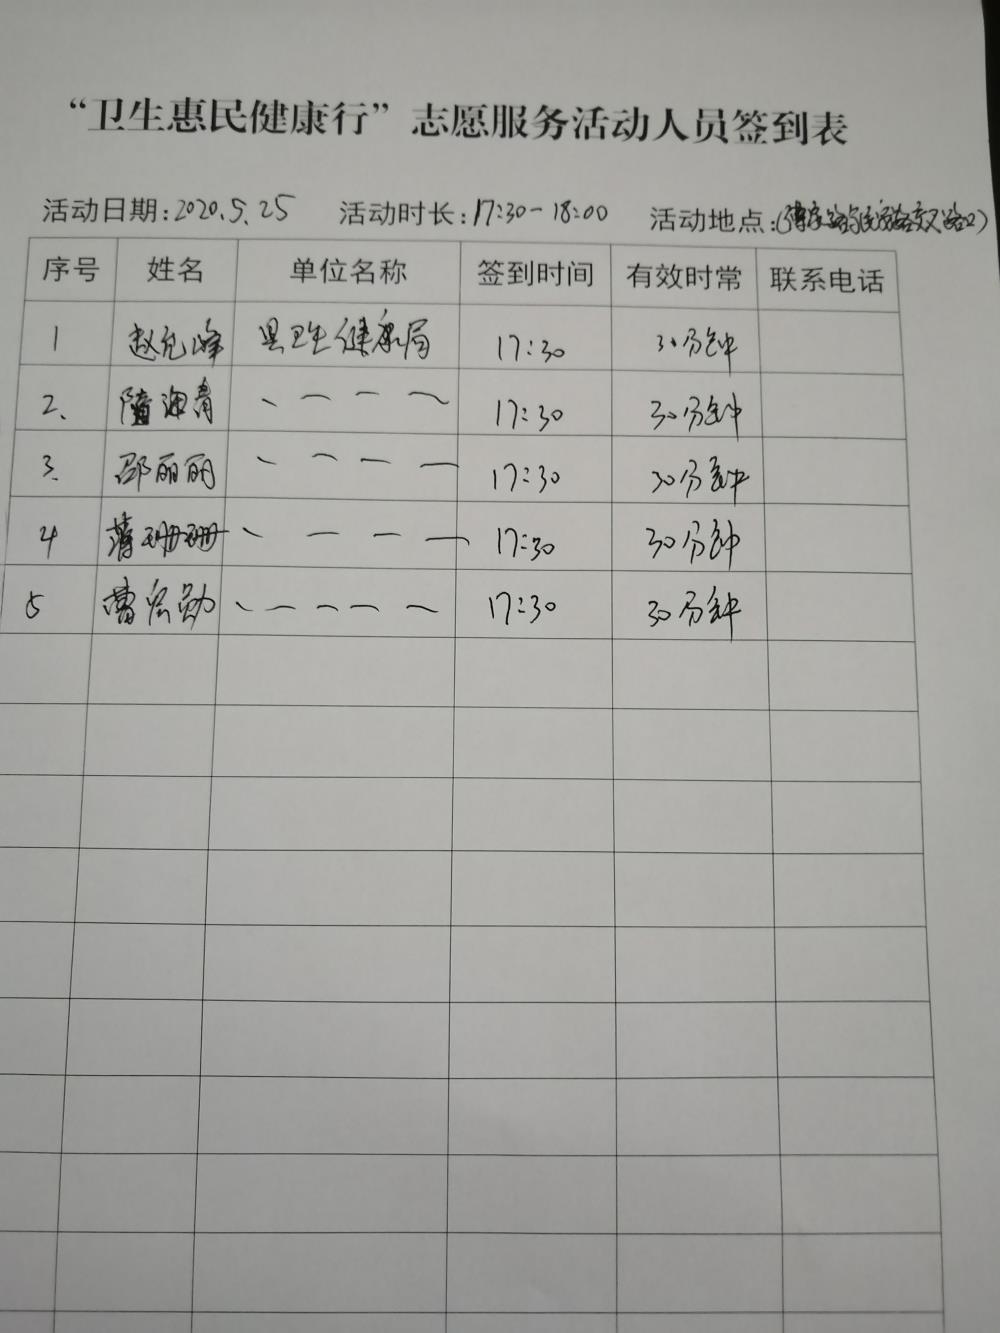 “卫生惠民健康行”志愿服务活动人员签到表
活动日期:2020.5.25 活动时长:17:30-18:00 活动地点:(博 路与 路交叉路口)
序号 姓名 单位名称 签到时间 有效时常 联系电话
1 赵允峰 县卫生健康局 17:30 30分钟
2、 隋海青 、一一一 17:30 30分钟
3、 邵丽丽 、一一一 17:30 30分钟
4 蒋珊珊 、一一一 17:30 30分钟
5 曹宏勋 、一一一一 17:30 30分钟